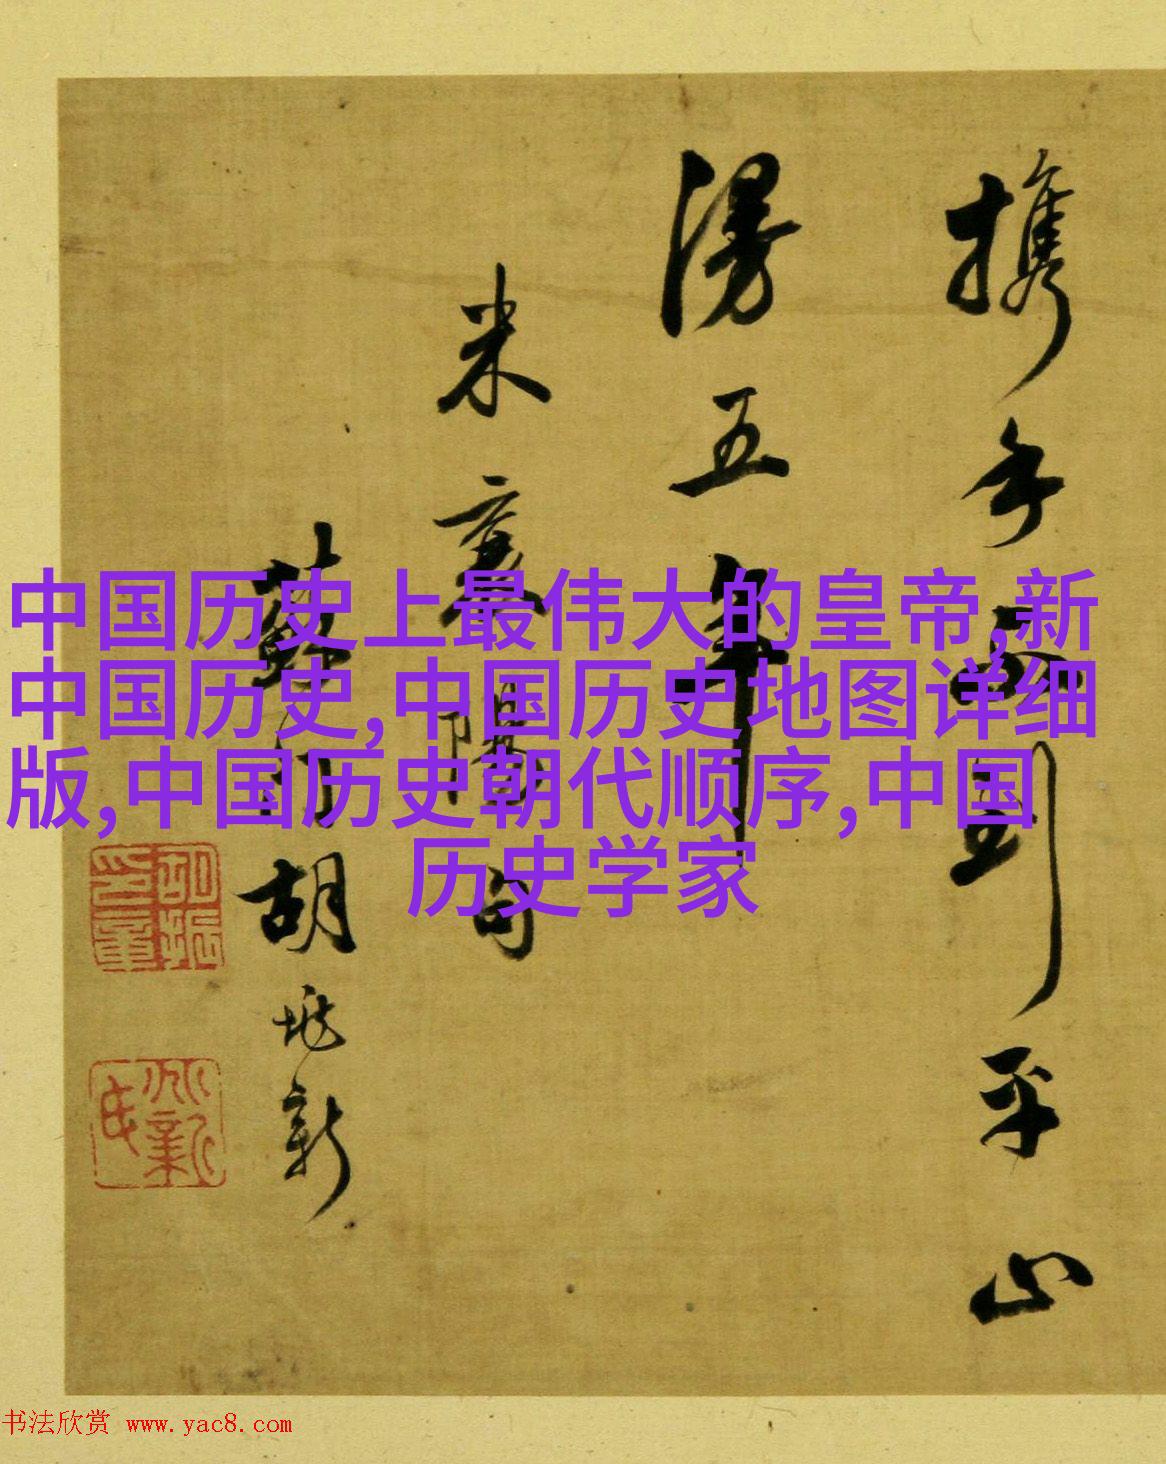 中国历史上最伟大的皇帝,新
中国历史,中国历史地图详细
版,中国历史朝代顺序,中国
历史学家
到平山
漫五車
米襄陽句
蘇門胡垗新
书法欣赏 www.yac8.com